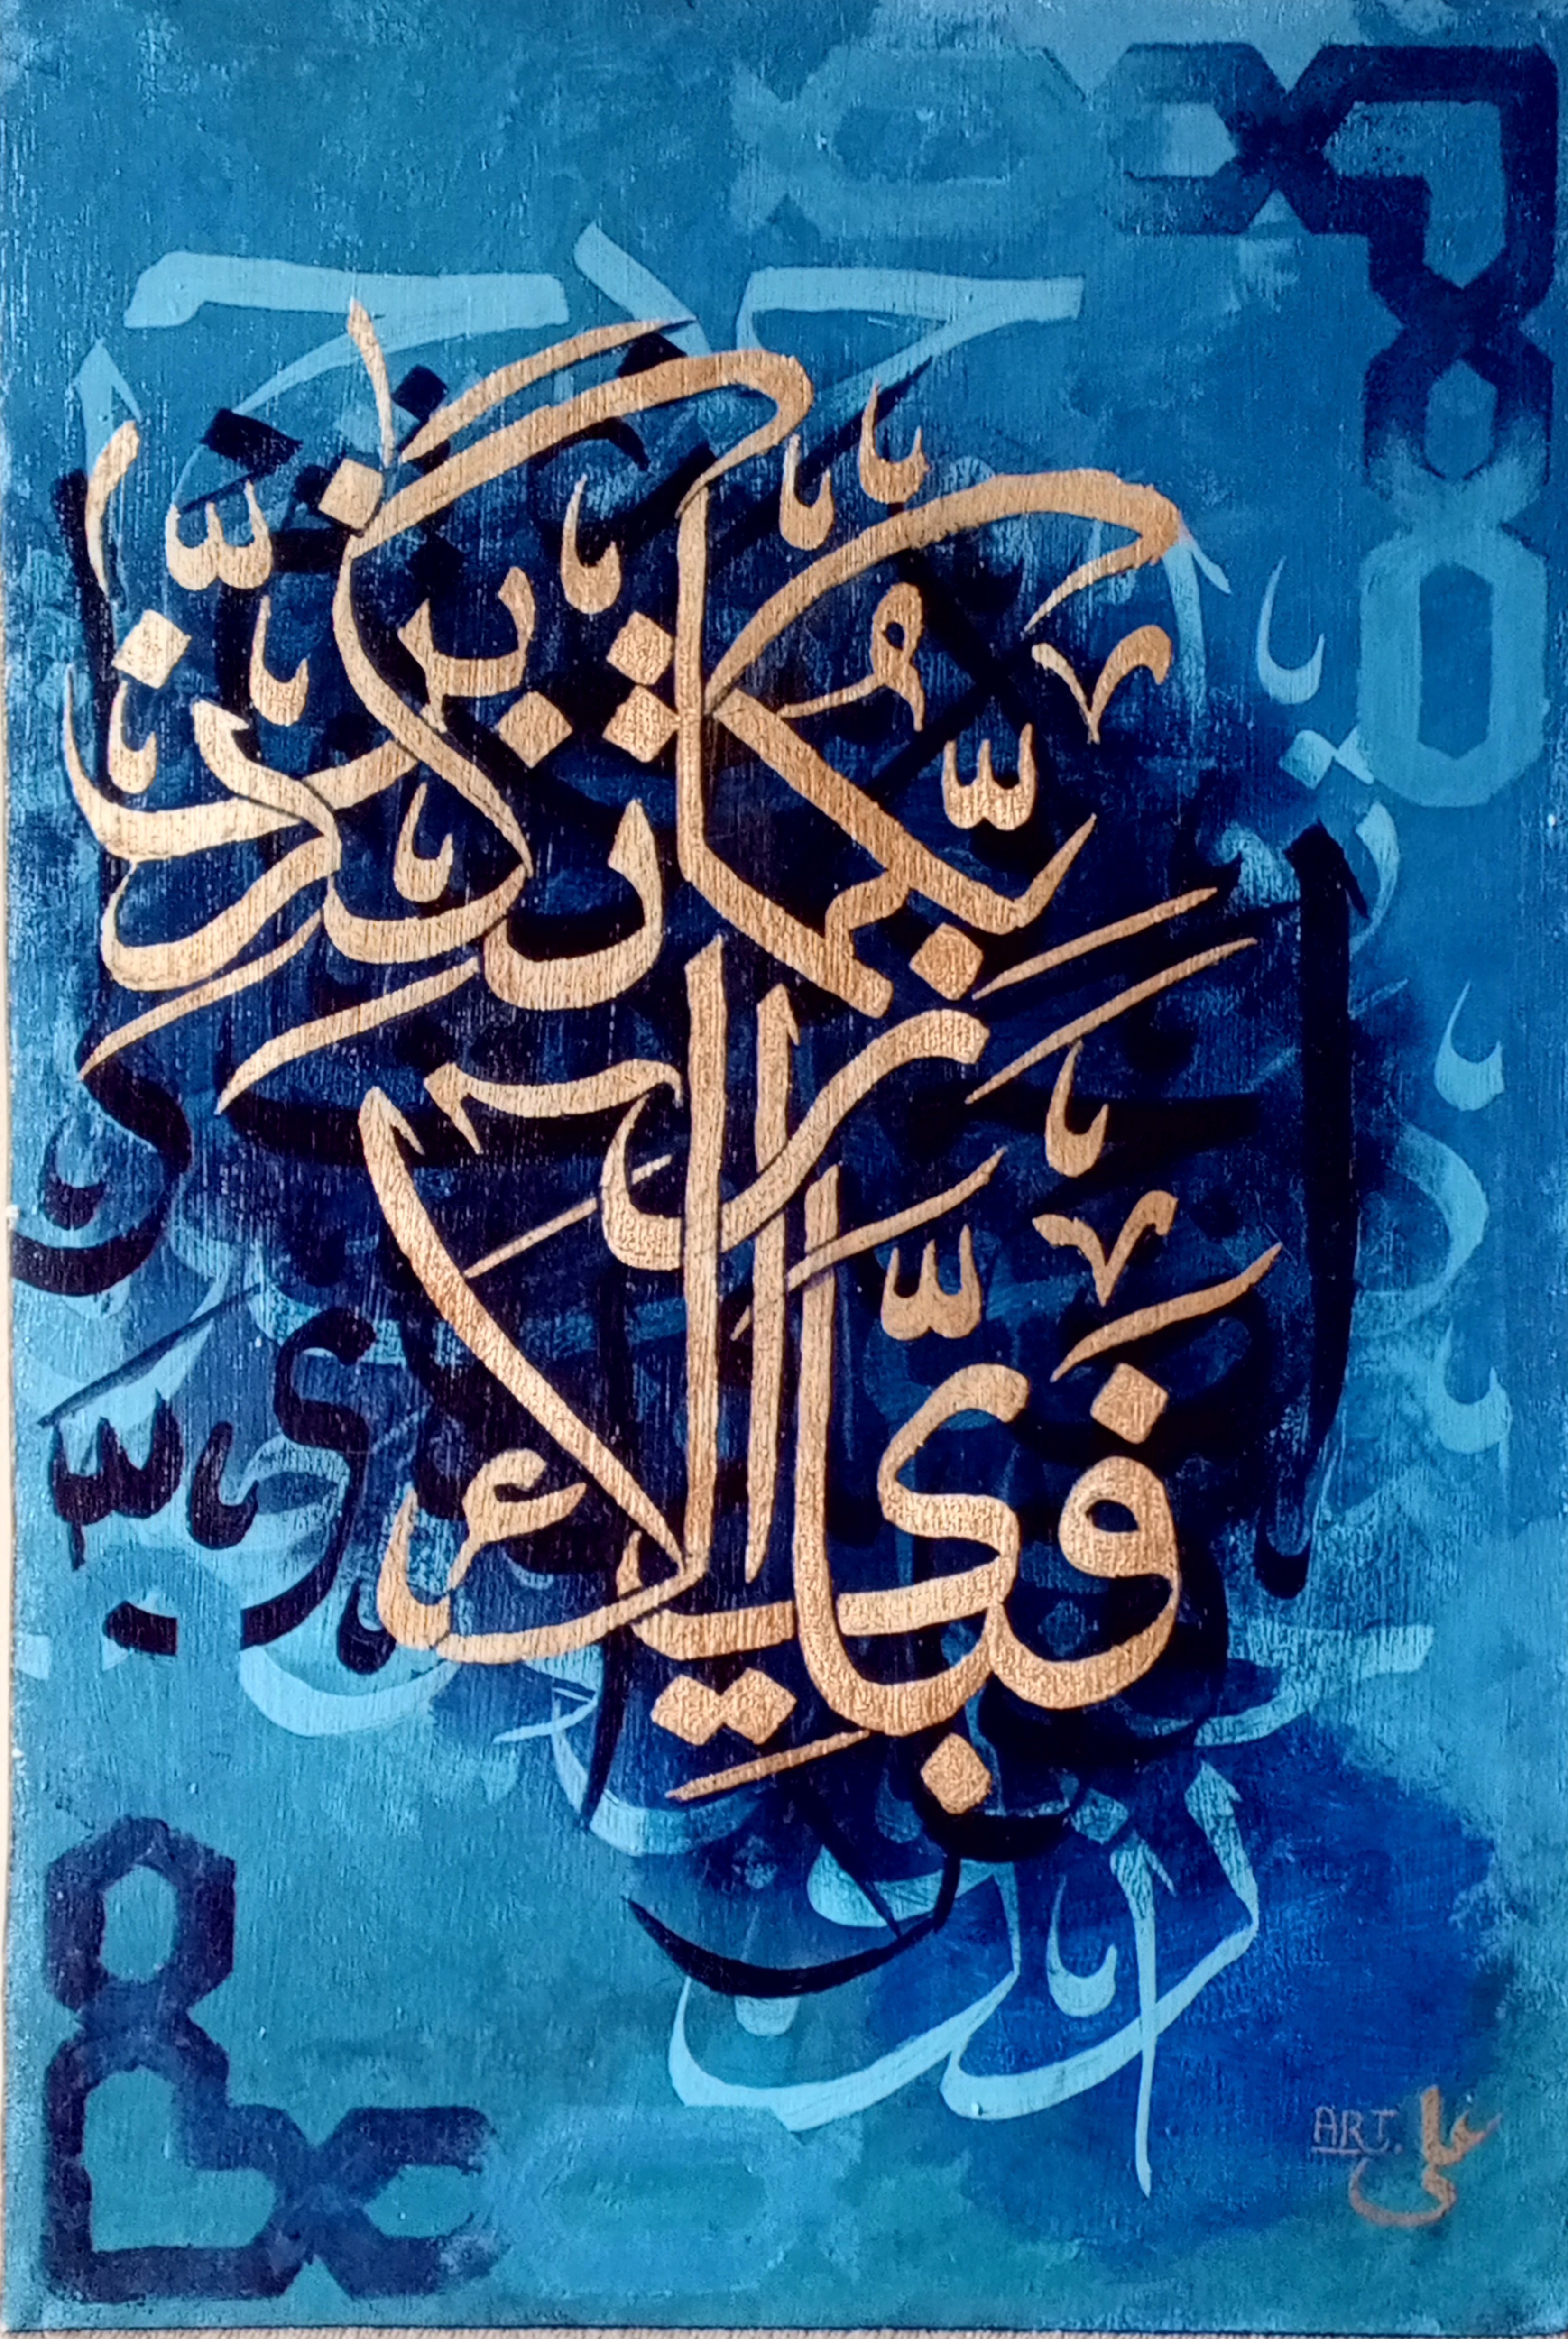 فَبِأَيِّ آلَاءِ
رَبِّكُمَا تُكَذِّبَانِ
ART. علی